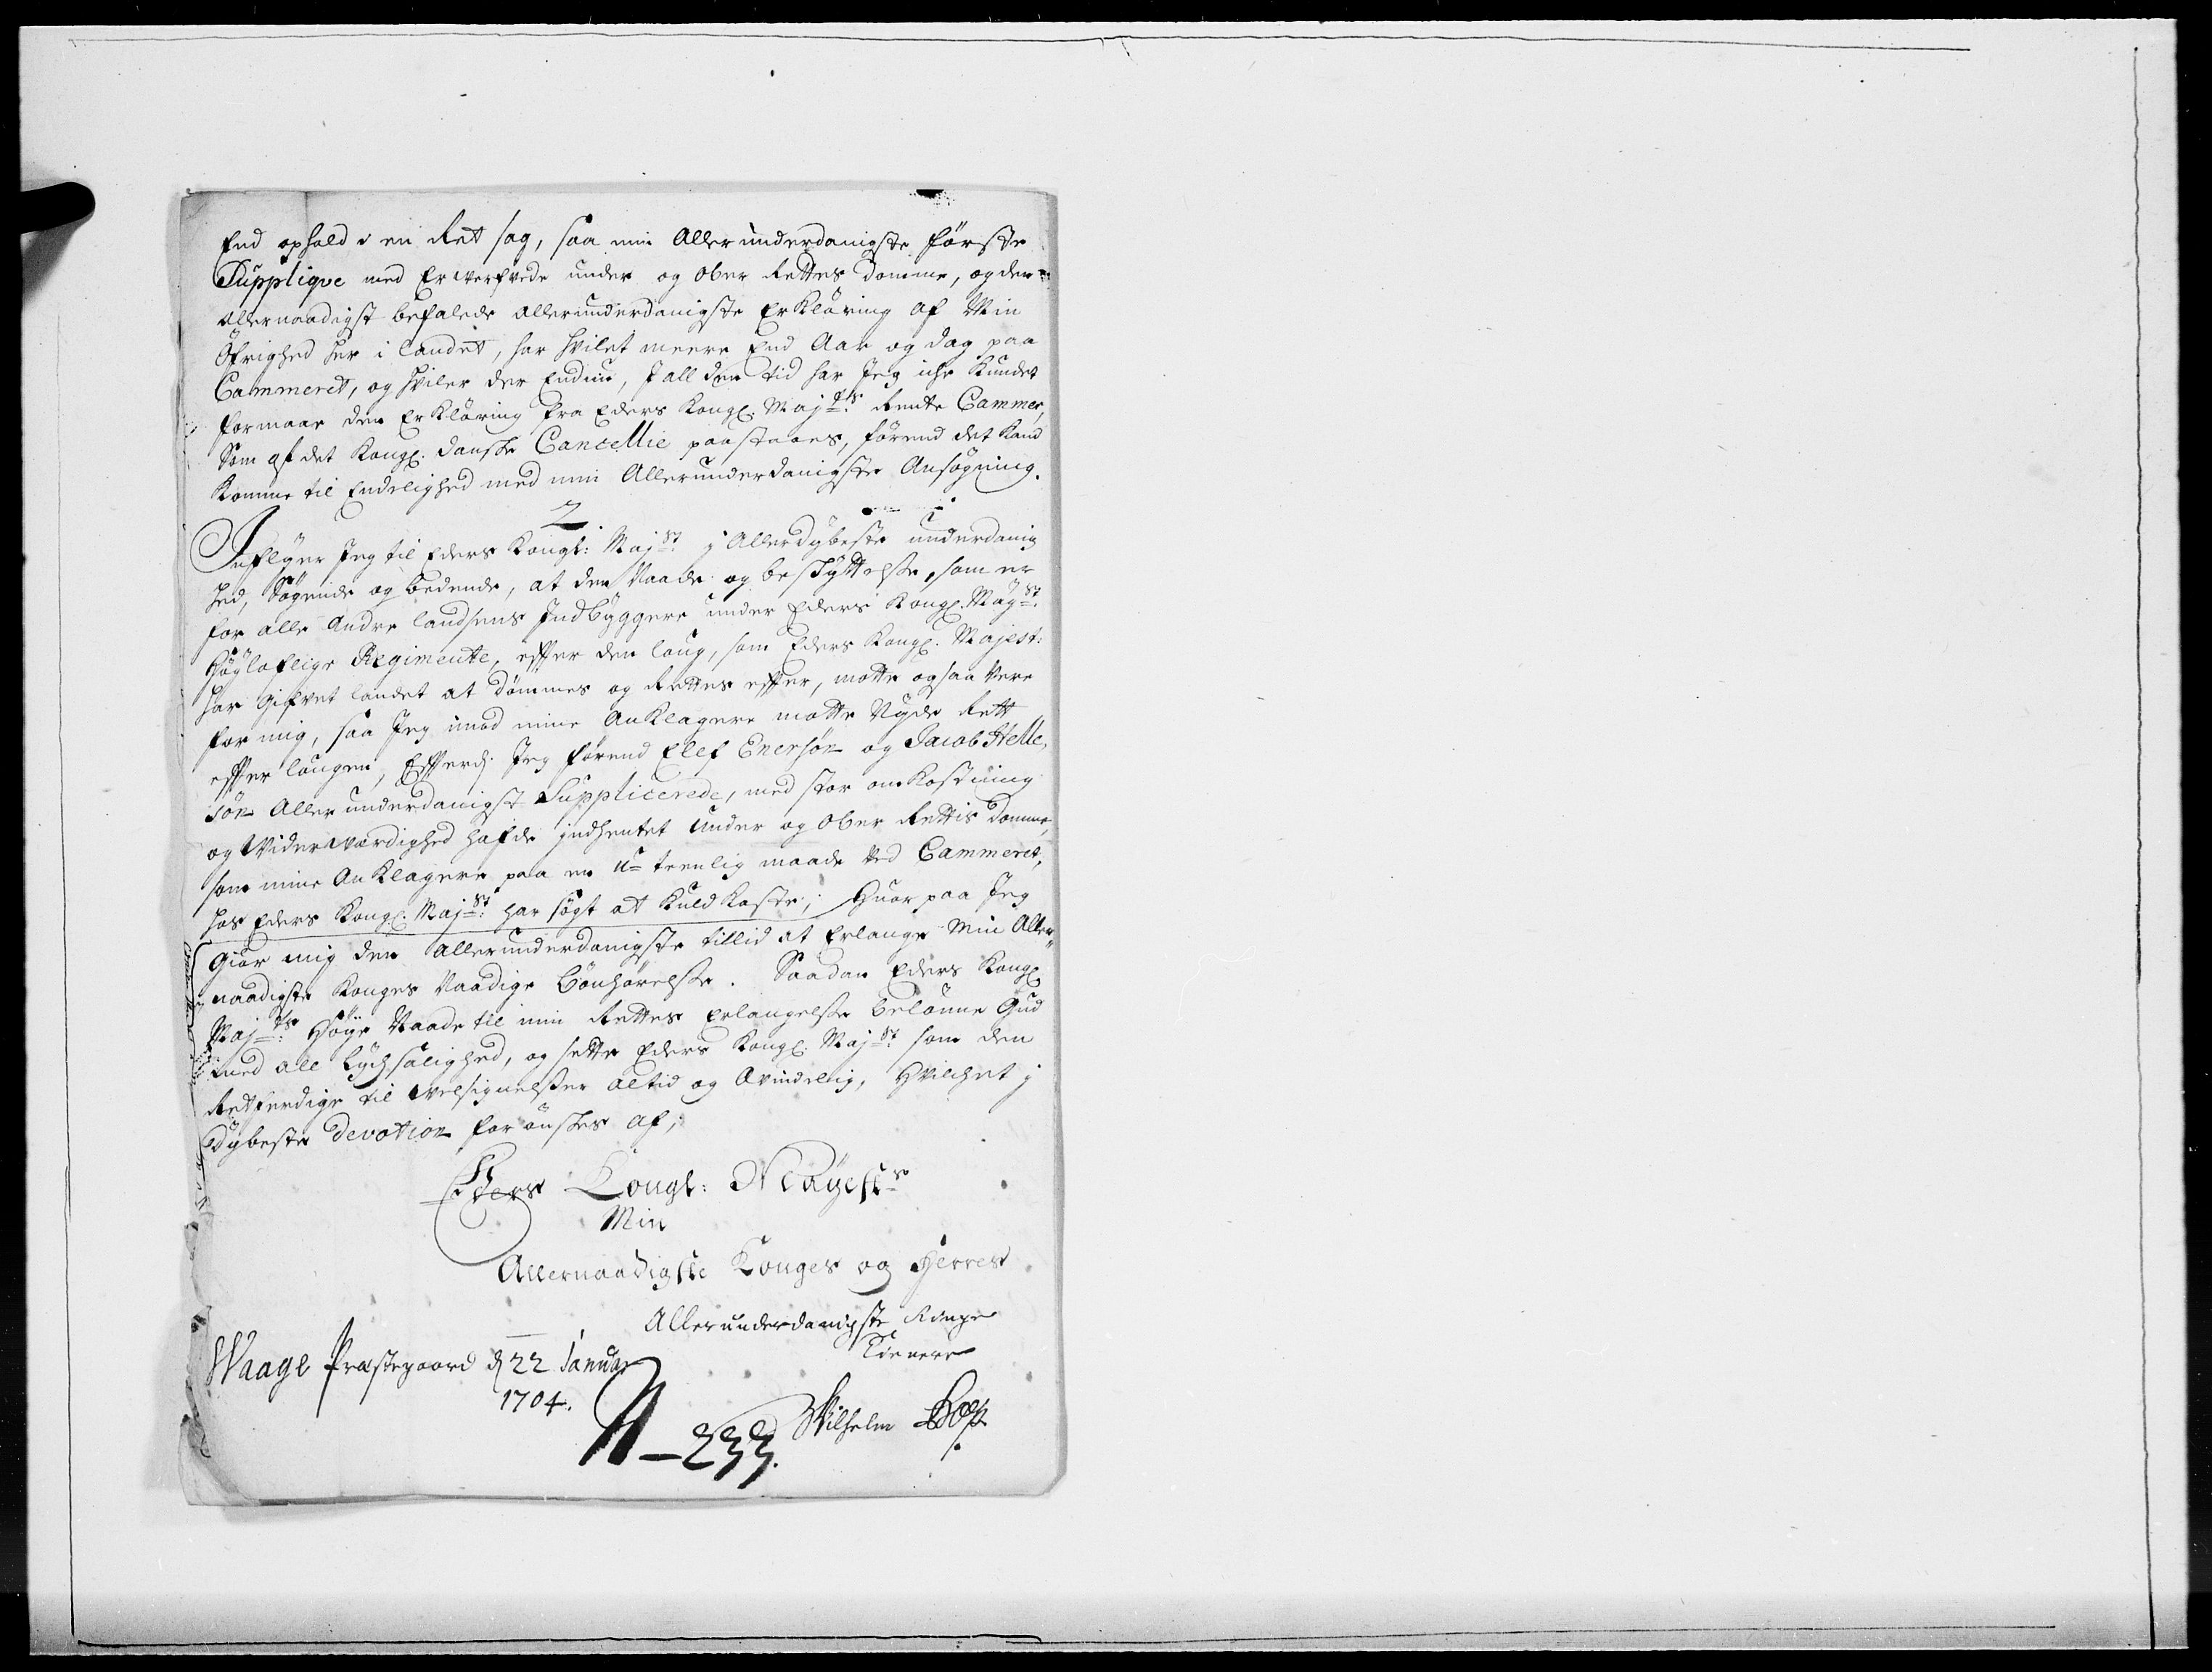 End ophold i en Ret sag, saa min Allerunderdanigste förste
Supplique med Erwerfvede under og Ober Rettes Domme, og den
Allernaadigst befalede allerunderdanigste Erklæring af Min
Öfrighed her i landet, har hvilet meere End Aar og dag paa
Cammeret, og hviler der Endnu, J all den tid har Jeg iche kundet
formaae den Erklæring fra Eders Kongl. Majts Rente Cammer,
Som af det Kongl. danske Cancellie paastaaes, förend det Kand
Komme til Endelighed med min Allerunderdanigste Ansögning.
2
Jeg til Eders Kongl: Majst j Allerdybeste underdanig
hed, Sögende og bedende, at den Naade og beskyttelse, som er
for alle Andre landsens Indbyggere under Eders Kongl. Mayst.
Höyloflige Regimente, effter den loug, som Eders Kongl. Majest:
har Gifvet landet at Dömmes og Rettes effter, motte ogsaa Vere
for mig, saa Jeg imod mine Anklagere motte Nyde Rett
effter lougen, Efferdj Jeg förend Elef Enersön og Jacob Helle,
sön Allerunderdanigst Supplicerede, med stor omkostning
og Widerwærdighed hafde jndhentet Under og Ober Rettis Domme,
som mine Anklagere paa en U- teenlig maade Ved Cammeret,
hos Eders Kongl. Majst: har sögt at Kuldkaste; Huorpaa Jeg
Giör mig den allerunderdanigste tillid at Erlange Min Aller-
naadigste Konges Naadige bönhörelse. Saadan Eders Kongl
Majts: Höye Naade til min Rettes Erlangelse belönne Gud
med all Lychsalighed, og sette Eders Kongl. Majst: som den
Retferdige til Welsignelser altid og Ævindelig, Hvilchet j
Dybeste Devotion forönskes af,
Eders Kongl: Mayests
Min
Allernaadigste Konges og Herres
Allerunderdanigste Ringe
Tienere
Waage Præstegaard d 22 Januar
1704.
Wilhelm
A-233.